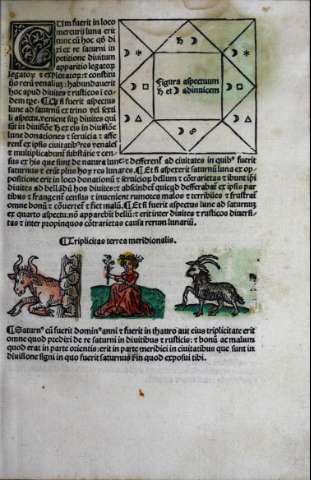 Cum fuerit in loco
mercurii luna erit
tunc cũ hoc qđ di
xi: ex re saturni in
petitione diuitum
apparitio legatoꝝ
legatoꝝ ⁊ explorator ⁊ constitu
tio reꝝ venaliũ: habundauerit
hoc apud diuites ⁊ rusticos i eo
dem tpe. ¶ Et si fuerit aspectus
lune ad saturnũ ex trino vel sexti
li aspectu. venient sup̱ diuites qui
sũt in diuisiõe ♄ et eis in diuisiõe
lune donationes ⁊ seruicia ⁊ affe
rent̃ ex ipsis ciuitatib9 res venales
⁊ multiplicabunt̃ substãtie ⁊ cen-
Figura aspectuum
♄ et ☽ adinuicem
sus ex his que sunt de natura lune: ⁊ defferent̃ ad ciuitates in quib9 fuerit
saturnus ⁊ erit plus hoc ⁊ res lunares. ¶ Et si aspexerit saturnũ luna ex op-
positione erit in loco donationũ ⁊ seruicioꝝ bellum ⁊ cõtrarietas ⁊ ibunt ip̃i
diuites ad bellãdũ hos diuites: ⁊ abscindet̃ quicqd defferebat̃ ex ipsis par
tibus ⁊ frangent̃ census ⁊ inuenient rumores malos ⁊ terribiles ⁊ frustrat̃
omne bonũ ⁊ cõuertet̃ ⁊ fiet malũ. ¶ Et si fuerit aspectus lune ad saturnũ
ex quarto aspectu. nõ apparebit bellũ: ⁊ erit inter diuites ⁊ rusticos diuersi-
tas ⁊ inter propinquos cõtrarietas causa rerum lunariũ.
¶ Triplicitas terrea meridionalis.
¶ Saturn9 cũ fuerit domin9 anni ⁊ fuerit in thauro aut eius triplicitate erit
omne quod predixi de re saturni in diuitibus ⁊ rusticis: ⁊ bonũ ac malum
quod erat in parte orientis: erit in parte meridiei in ciuitatibus que sunt in
diuisione signi in quo fuerit saturnus s̃m quod exposui tibi.